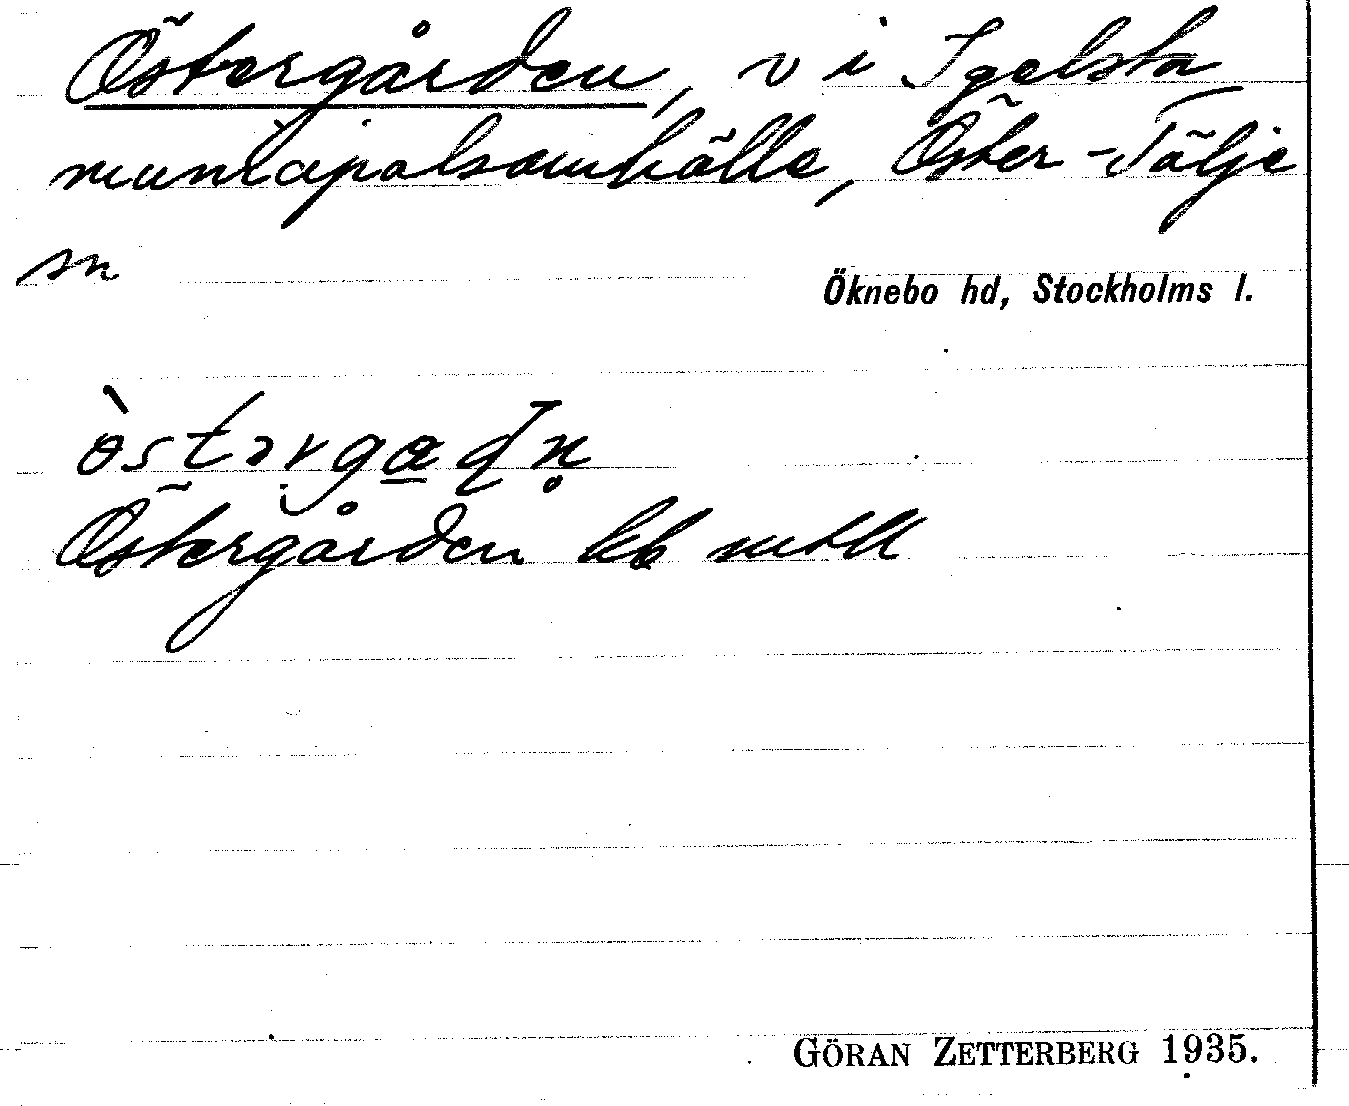 Östergården, v i Igelsta
municipalsamhälle, Öster-Tälje
sn
Öknebo hd, Stockholms l.
Östergården kb mtll
GÖRAN ZETTERBERG 1935.